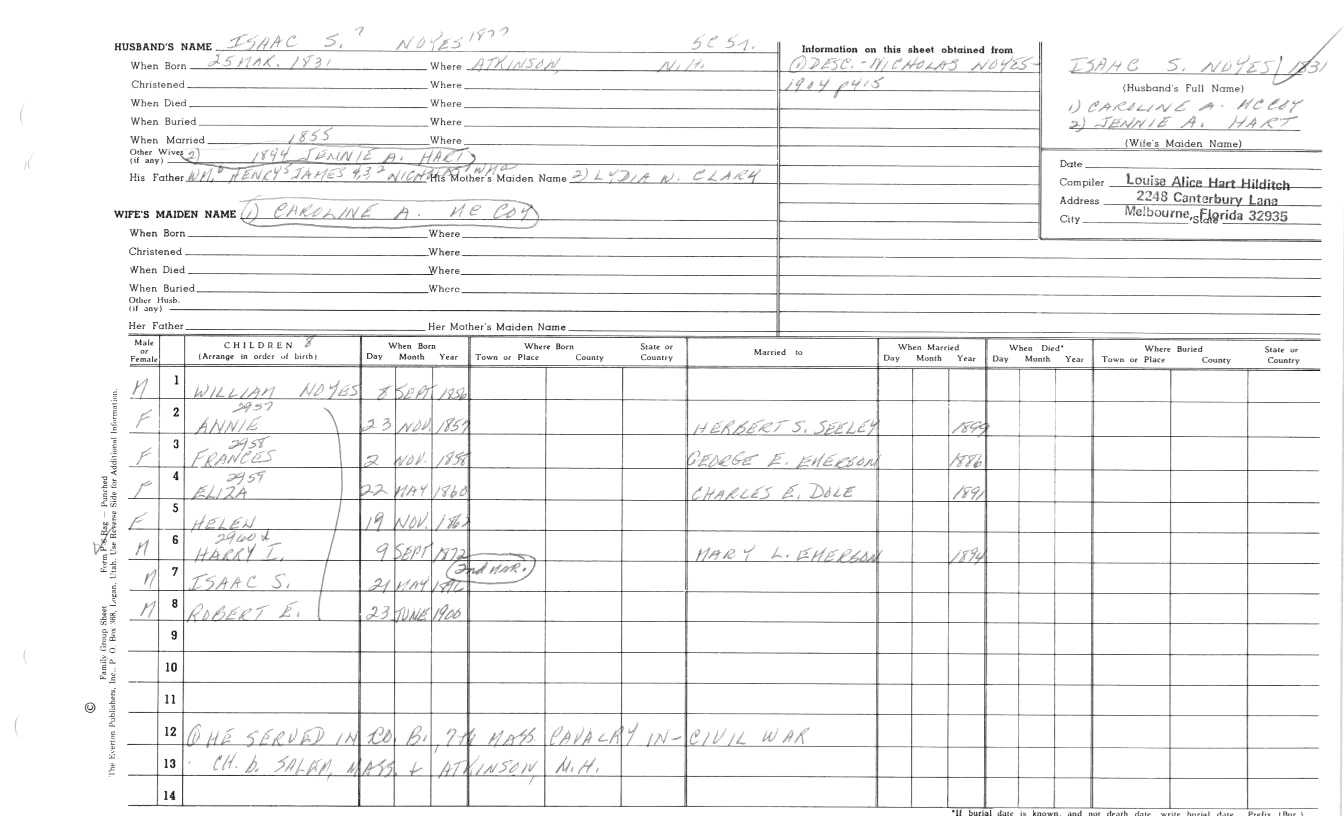 HUSBAND'S NAME ISAAC S.7 NOYES 1877 SC SN.
When Born 25 MAR. 1831 Where ATKINSON, N.H.
Christened Where
When Died Where
When Buried Where
When Married 1855 Where
Other Wives (if any) 2) 1894 JENNIE A. HART
His Father WM,6 HENRY5 JAMES 4,3,2 His Mother's Maiden Name 2) LYDIA W. CLARK
WIFE'S MAIDEN NAME 1) CAROLINE A. MC COY
When Born Where
Christened Where
When Died Where
When Buried Where
Other Husb. (if any)
Her Father Her Mother's Maiden Name
Information on this sheet obtained from
① DESC. - NICHOLAS NOYES -
1904 p415
ISAAC S. NOYES / 1831
(Husband's Full Name)
1) CAROLINE A. MCCOY
2) JENNIE A. HART
(Wife's Maiden Name)
Date
Compiler Louise Alice Hart Hilditch
Address 2248 Canterbury Lane
City Melbourne, Florida 32935 State
Male or Female CHILDREN 8 (Arrange in order of birth) When Born Day Month Year Where Born Town or Place County State or Country Married to When Married Day Month Year When Died* Day Month Year Where Buried Town or Place County State or Country
M 1 WILLIAM NOYES 8 SEPT 1856
2957
F 2 ANNIE 23 NOV. 1857 HERBERT S. SEELEY 1899
2958
F 3 FRANCES 2 NOV. 1858 GEORGE E. EMERSON 1886
2959
F 4 ELIZA 22 MAY 1860 CHARLES E. DOLE 1891
F 5 HELEN 19 NOV. 1862
2960
M 6 HARRY I. 9 SEPT 1872 MARY L. EMERSON 1894
2nd MAR.
M 7 ISAAC S. 21 MAY
M 8 ROBERT E. 23 JUNE 1900
9
10
11
12 ① HE SERVED IN CO. B., 7th MASS CAVALRY IN - CIVIL WAR
13 CH. b. SALEM, MASS. + ATKINSON, N.H.
14
*If burial date is known, and not death date, write burial date. Prefix (Bur.)
Family Group Sheet Form P's Rag — Punched
© The Everton Publishers, Inc., P. O. Box 368, Logan, Utah. Use Reverse Side for Additional Information.